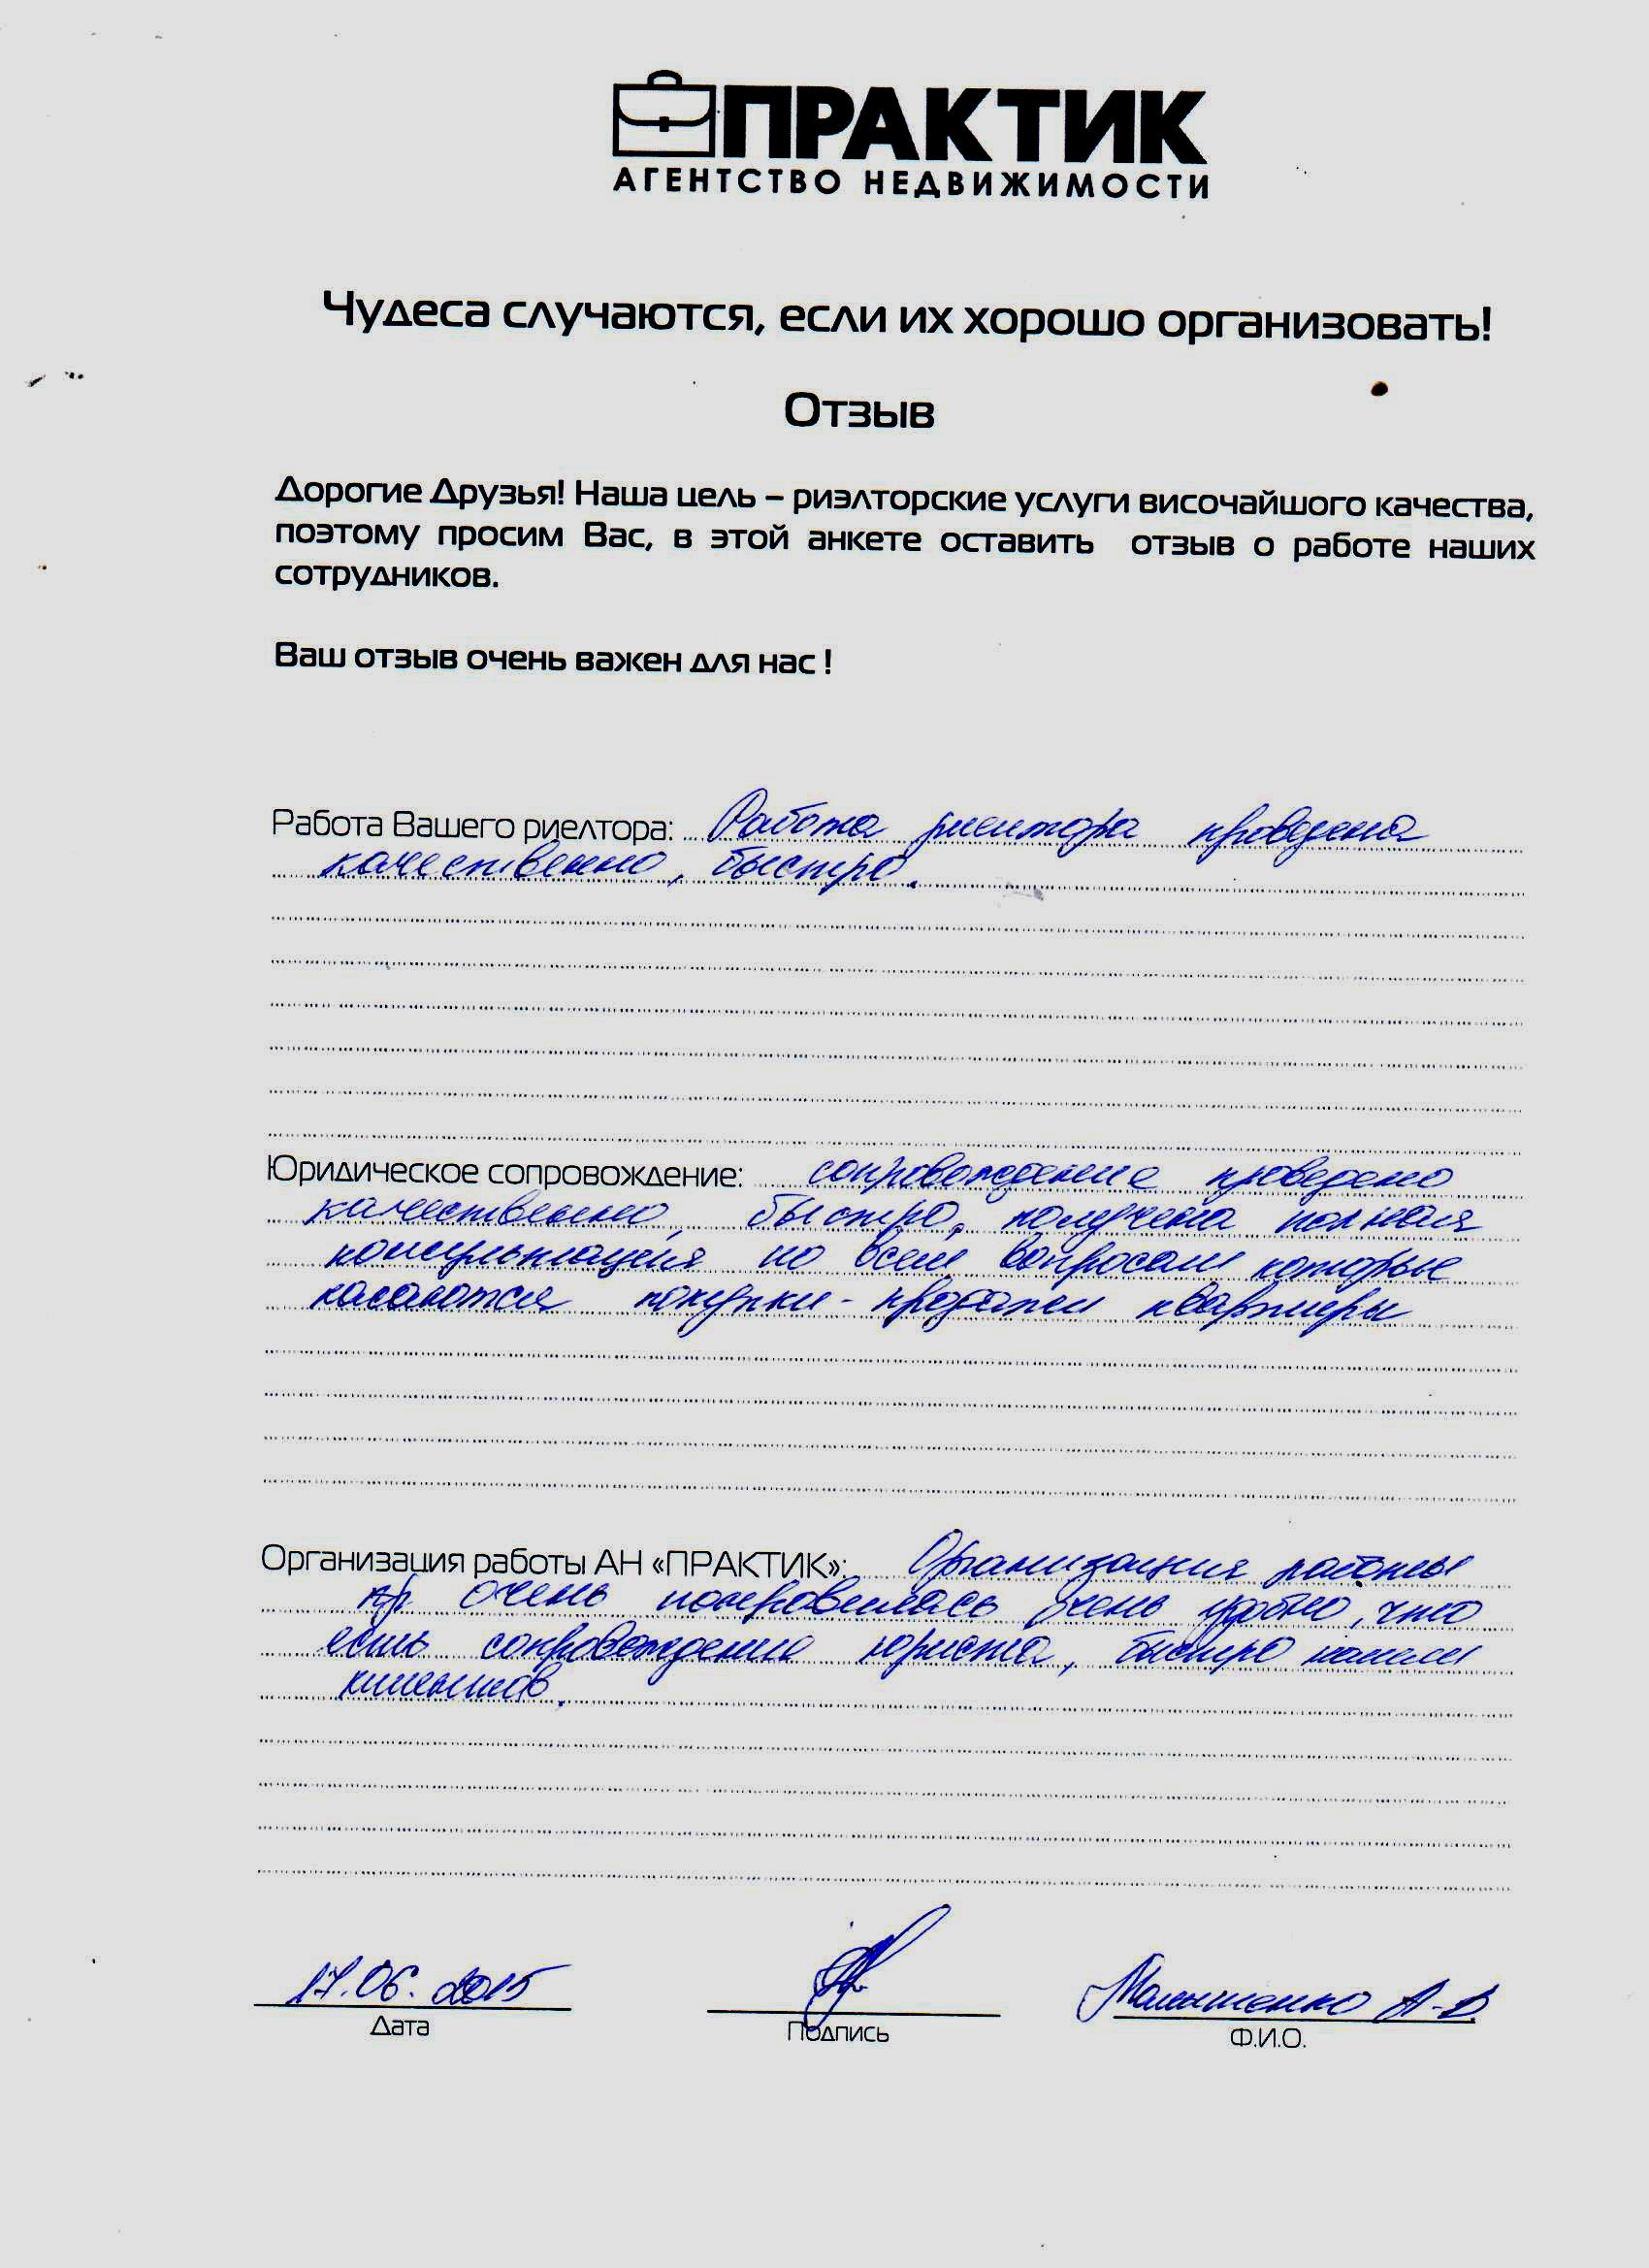 ПРАКТИК
АГЕНТСТВО НЕДВИЖИМОСТИ
Чудеса случаются, если их хорошо организовать!
Отзыв
Дорогие Друзья! Наша цель – риэлторские услуги височайшого качества,
поэтому просим Вас, в этой анкете оставить отзыв о работе наших
сотрудников.
Ваш отзыв очень важен для нас !
Работа Вашего риелтора: Работа риелтора проведена
качественно, быстро.
Юридическое сопровождение: сопровождение проведено
качественно, быстро, получена полная
консультация по всем вопросам которые
касаются покупки-продажи квартиры
Организация работы АН «ПРАКТИК»: Организация работы
очень понравилась очень удобно, что
есть сопровождение юриста, быстро нашли
17.06.2015
Дата
Подпись
А.В.
Ф.И.О.